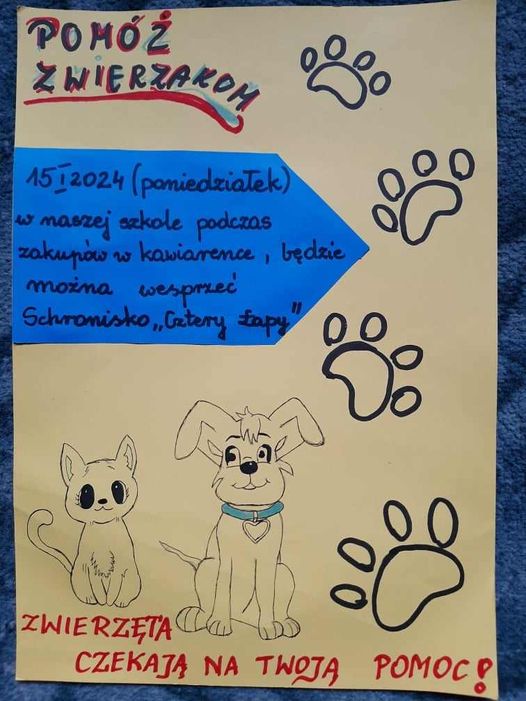 POMÓŻ
ZWIERZAKOM
15 I 2024 (poniedziałek)
w naszej szkole podczas
zakupów w kawiarence, będzie
można wesprzeć
Schronisko „Cztery Łapy"
ZWIERZĘTA
CZEKAJĄ NA TWOJĄ POMOC!